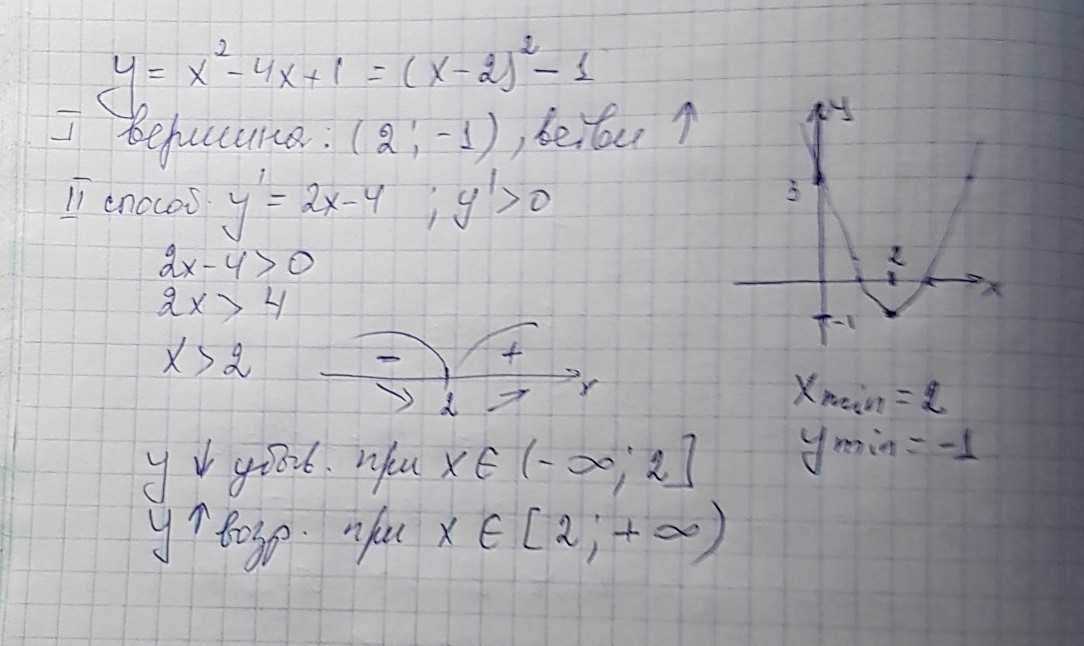 y = x² - 4x + 1 = (x - 2)² - 1
I вершина: (2; -1), ветви ↑
II способ y' = 2x - 4 ; y' > 0
2x - 4 > 0
2x > 4
x > 2
- +
2 x
y ↓ убыв. при x ∈ (-∞; 2]
y ↑ возр. при x ∈ [2; +∞)
y
3
2
x
-1
x min = 2
y min = -1